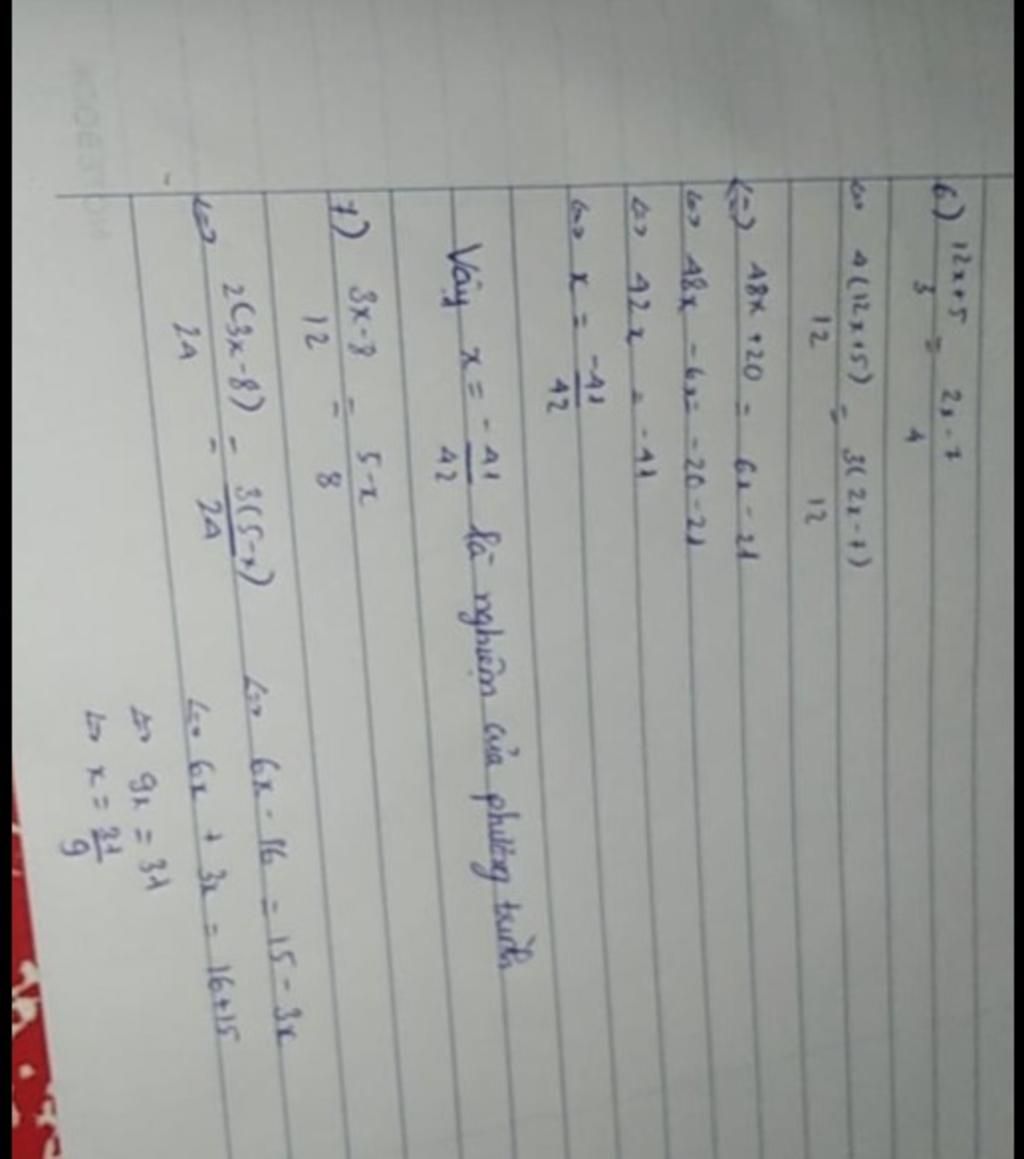 6) 12x+5/3 = 2x-7/4
<=> 4(12x+5)/12 = 3(2x-7)/12
<=> 48x + 20 = 6x - 21
<=> 48x - 6x = -20 - 21
<=> 42x = -41
<=> x = -41/42
Vậy x = -41/42 là nghiệm của phương trình
7) 3x-8/12 = 5-x/8
<=> 2(3x-8)/24 = 3(5-x)/24 <=> 6x - 16 = 15 - 3x
<=> 6x + 3x = 16+15
<=> 9x = 31
<=> x = 31/9